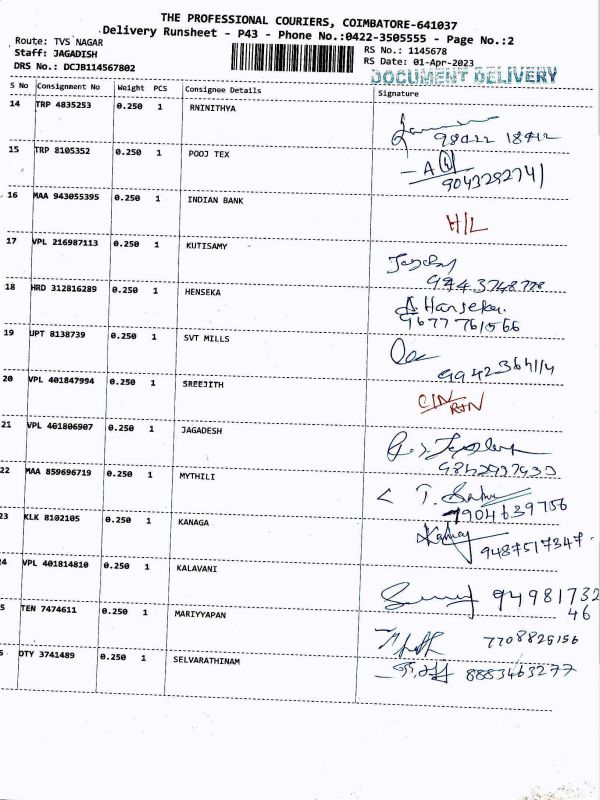 THE PROFESSIONAL COURIERS, COIMBATORE-641037
Delivery Runsheet - P43 - Phone No.:0422-3505555 - Page No.:2
Route: TVS NAGAR
Staff: JAGADISH
DRS No.: DCJB114567802
RS No.: 1145678
RS Date: 01-Apr-2023
DOCUMENT DELIVERY
S No Consignment No Weight PCS Consignee Details Signature
14 TRP 4835253 0.250 1 RNINITHYA
98422 18412
15 TRP 8105352 0.250 1 POOJ TEX
9043292741
16 MAA 943055395 0.250 1 INDIAN BANK
H/L
17 VPL 216987113 0.250 1 KUTISAMY
9443748778
18 HRD 312816289 0.250 1 HENSEKA
Hanseka
9677761566
19 UPT 8138739 0.250 1 SVT MILLS
9942364114
20 VPL 401847994 0.250 1 SREEJITH
RTN
21 VPL 401806907 0.250 1 JAGADESH
9842937933
22 MAA 859696719 0.250 1 MYTHILI
7904639756
23 KLK 8102105 0.250 1 KANAGA
9487517347
24 VPL 401814810 0.250 1 KALAVANI
94981732
46
5 TEN 7474611 0.250 1 MARIYYAPAN
7708825156
6 DTY 3741489 0.250 1 SELVARATHINAM
8883463277